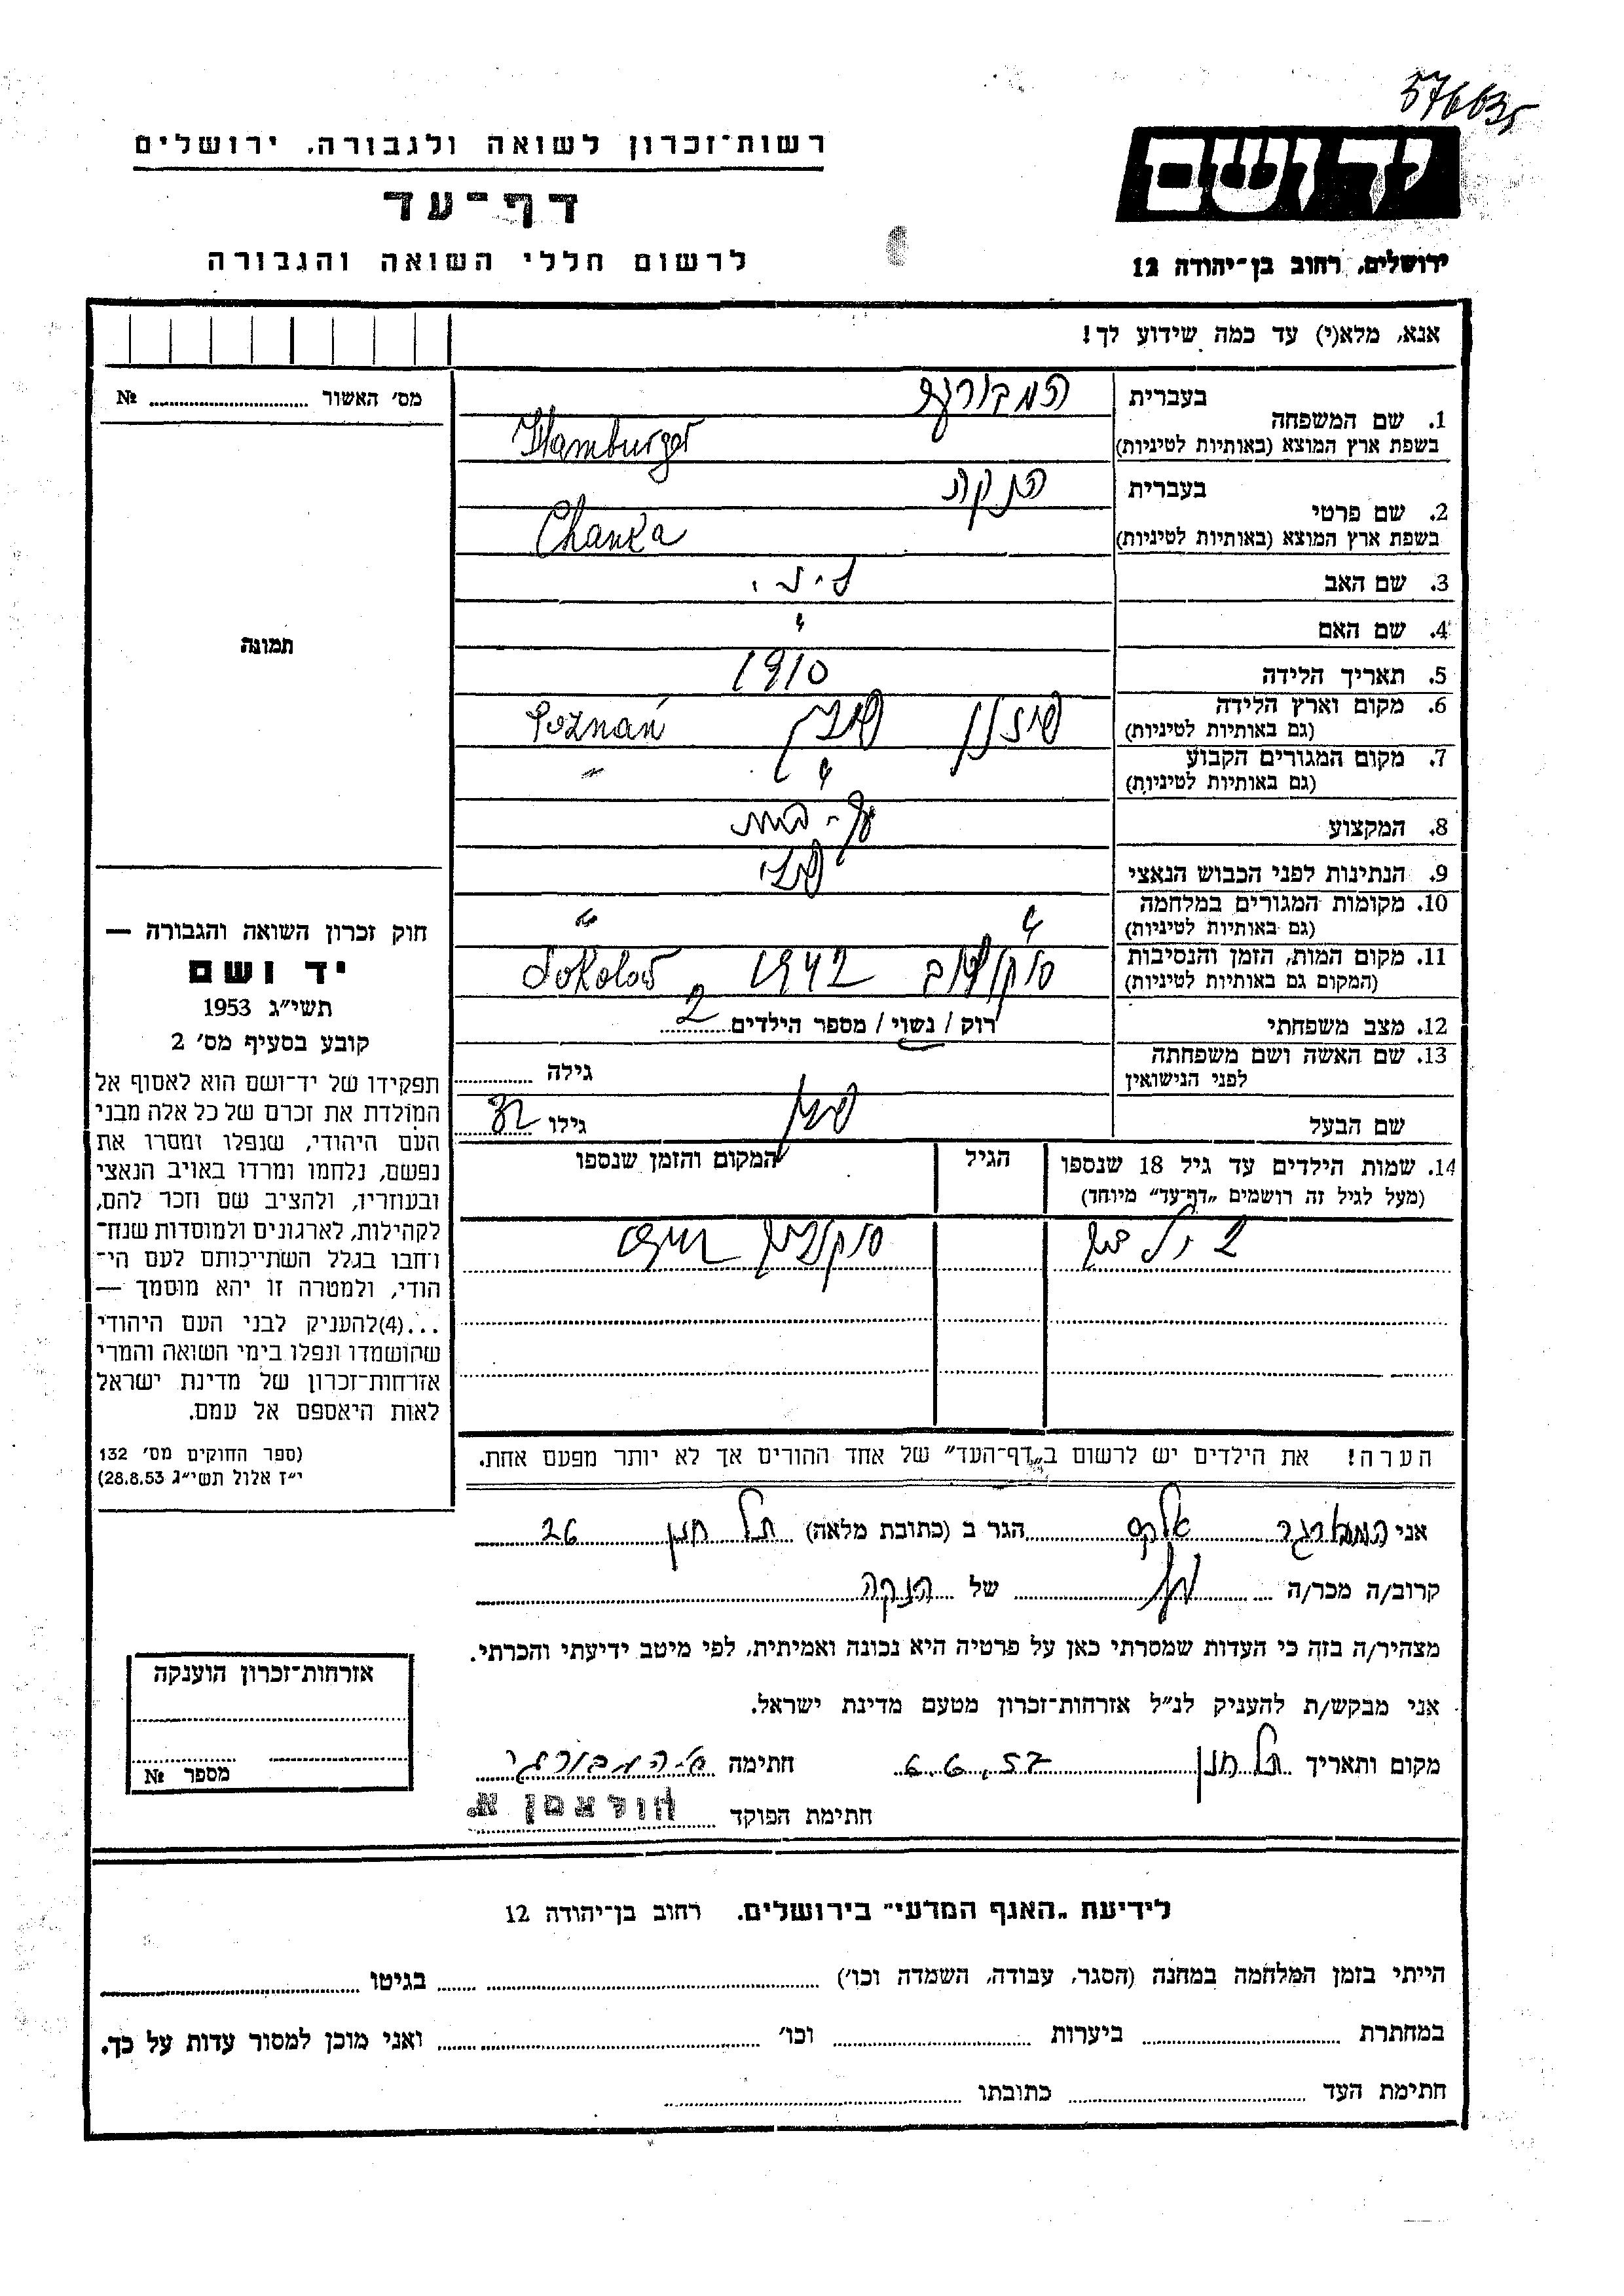 576635
רשות-זכרון לשואה ולגבורה, ירושלים
דף-עד
לרשום חללי השואה והגבורה
ידושם
ירושלים, רחוב בן-יהודה 12
אנא, מלא(י) עד כמה שידוע לך!
מס׳ האשור № ..........
תמונה
1. שם המשפחה
בעברית המבורגר
בשפת ארץ המוצא (באותיות לטיניות) Hamburger
2. שם פרטי
בעברית הנקה
בשפת ארץ המוצא (באותיות לטיניות) Chanka
3. שם האב
4. שם האם "
5. תאריך הלידה 1910
6. מקום וארץ הלידה פוזנן פולין Poznań
(גם באותיות לטיניות)
7. מקום המגורים הקבוע " "
(גם באותיות לטיניות)
8. המקצוע עק-בית
9. הנתינות לפני הכבוש הנאצי פולני
10. מקומות המגורים במלחמה " "
(גם באותיות לטיניות)
11. מקום המות, הזמן והנסיבות סוקולוב 1942 Sokolow
(המקום גם באותיות לטיניות)
12. מצב משפחתי רוק / נשוי / מספר הילדים 2
13. שם האשה ושם משפחתה גילה ..........
לפני הנישואין
שם הבעל גילו 32
14. שמות הילדים עד גיל 18 שנספו הגיל המקום והזמן שנספו
(מעל לגיל זה רושמים „דף-עד" מיוחד)
2 ילדים
הערה! את הילדים יש לרשום ב„דף-העד" של אחד ההורים אך לא יותר מפעם אחת.
חוק זכרון השואה והגבורה —
יד ושם
תשי״ג 1953
קובע בסעיף מס׳ 2
תפקידו של יד-ושם הוא לאסוף אל
המולדת את זכרם של כל אלה מבני
העם היהודי, שנפלו ומסרו את
נפשם, נלחמו ומרדו באויב הנאצי
ובעוזריו, ולהציב שם וזכר להם,
לקהילות, לארגונים ולמוסדות שנח-
רחבו בגלל השתייכותם לעם הי-
הודי, ולמטרה זו יהא מוסמך —
...(4)להעניק לבני העם היהודי
שהושמדו ונפלו בימי השואה והמרי
אזרחות-זכרון של מדינת ישראל
לאות היאספם אל עמם.
(ספר החוקים מס׳ 132
י״ז אלול תשי״ג 28.8.53)
אני המבורגר אלקס הגר ב (כתובת מלאה) תל חנן 26
קרוב/ה מכר/ה של הנקה
מצהיר/ה בזה כי העדות שמסרתי כאן על פרטיה היא נכונה ואמיתית, לפי מיטב ידיעתי והכרתי.
אני מבקש/ת להעניק לנ״ל אזרחות-זכרון מטעם מדינת ישראל.
מקום ותאריך תל חנן 6.6.57 חתימה א. המבורגר
חתימת הפוקד הולצמן א.
אזרחות-זכרון הוענקה
מספר №
לידיעת „האגף המדעי״ בירושלים. רחוב בן-יהודה 12
הייתי בזמן המלחמה במחנה (הסגר, עבודה, השמדה וכו׳) .......... בגיטו ..........
במחתרת .......... ביערות .......... וכו׳ .......... ואני מוכן למסור עדות על כך.
חתימת העד .......... כתובתו ..........